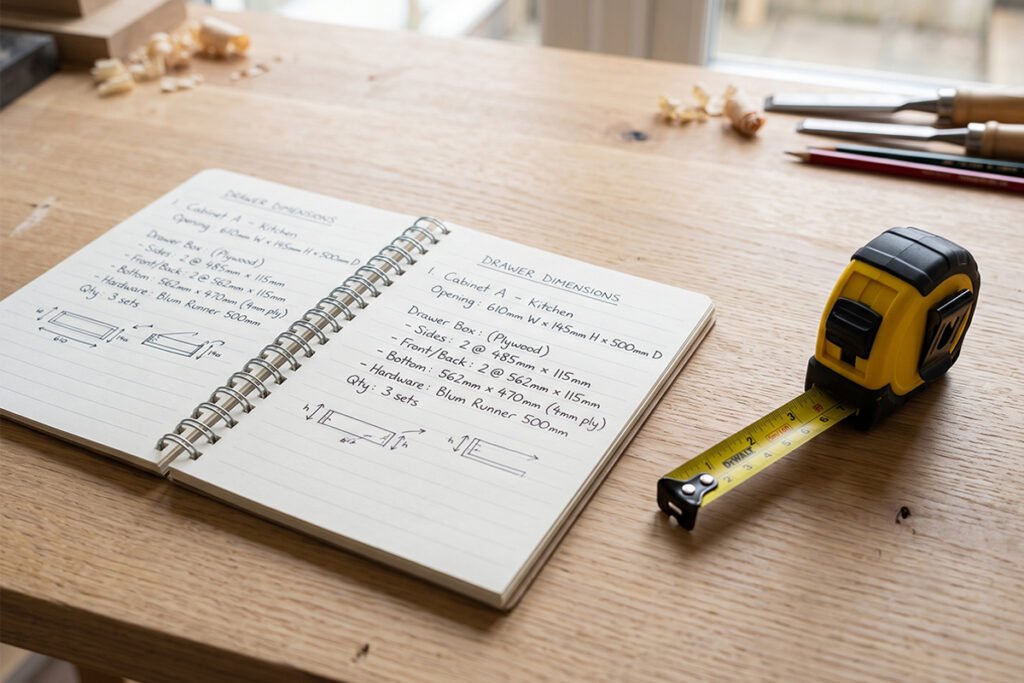 DRAWER DIMENSIONS
1. Cabinet A - Kitchen
Opening: 610mm W x 145mm H x 500mm D
Drawer Box: (Plywood)
- Sides: 2 @ 485mm x 115mm
- Front/Back: 2 @ 562mm x 115mm
- Bottom: 562mm x 470mm (4mm ply)
- Hardware: Blum Runner 500mm
Qty: 3 sets
610
DRAWER DIMENSIONS
1. Cabinet A - Kitchen
Opening: 610mm W x 145mm H x 500mm D
Drawer Box: (Plywood)
- Sides: 2 @ 485mm x 115mm
- Front/Back: 2 @ 562mm x 115mm
- Bottom: 562mm x 470mm (4mm ply)
- Hardware: Blum Runner 500mm
Qty: 3 sets
h
h
h
1 2 3
DEWALT
2 3 4 5 6